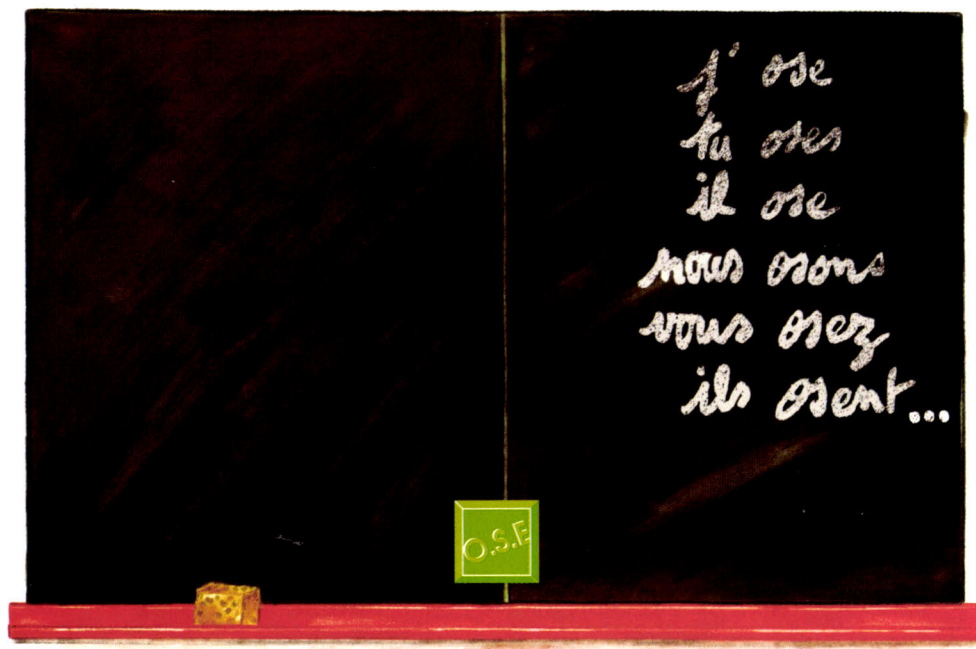 j'ose
tu oses
il ose
nous osons
vous osez
ils osent...
O.S.E